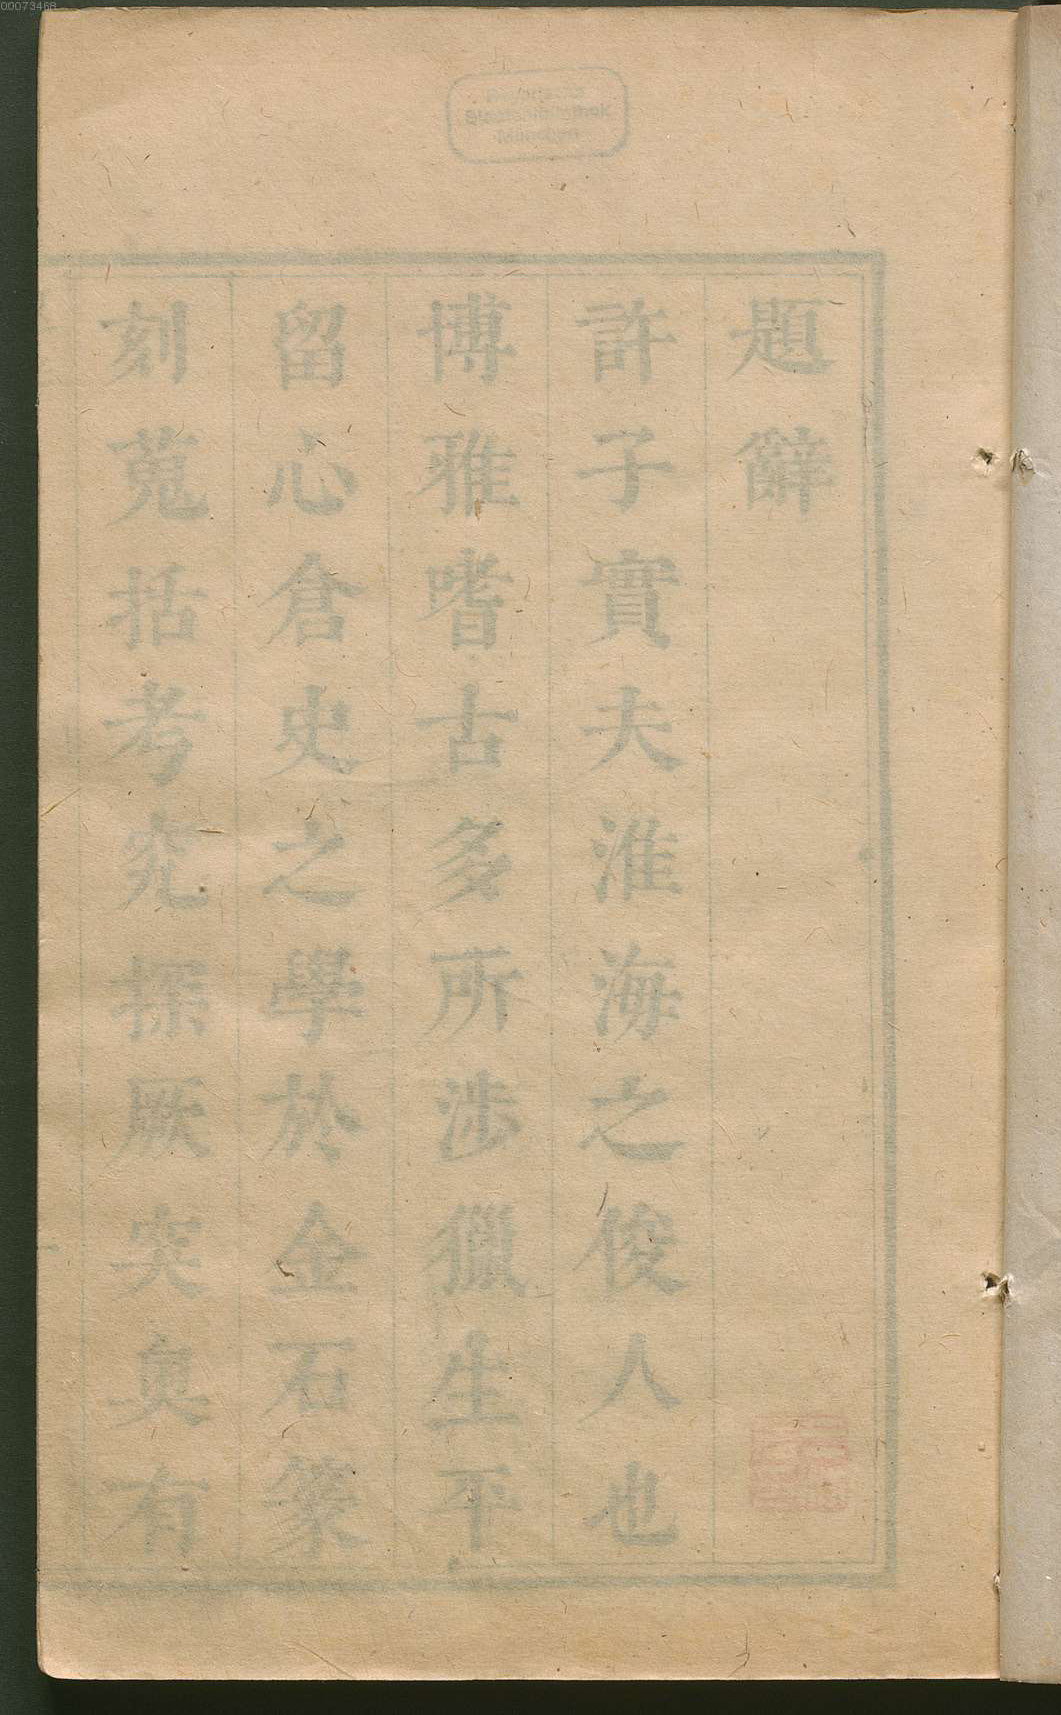 00073468
Bayerische
Staatsbibliothek
München
題辭
許子實夫淮海之俊人也
博雅嗜古多所涉獵生平
留心倉史之學於金石篆
刻蒐括考究探厥突奧有